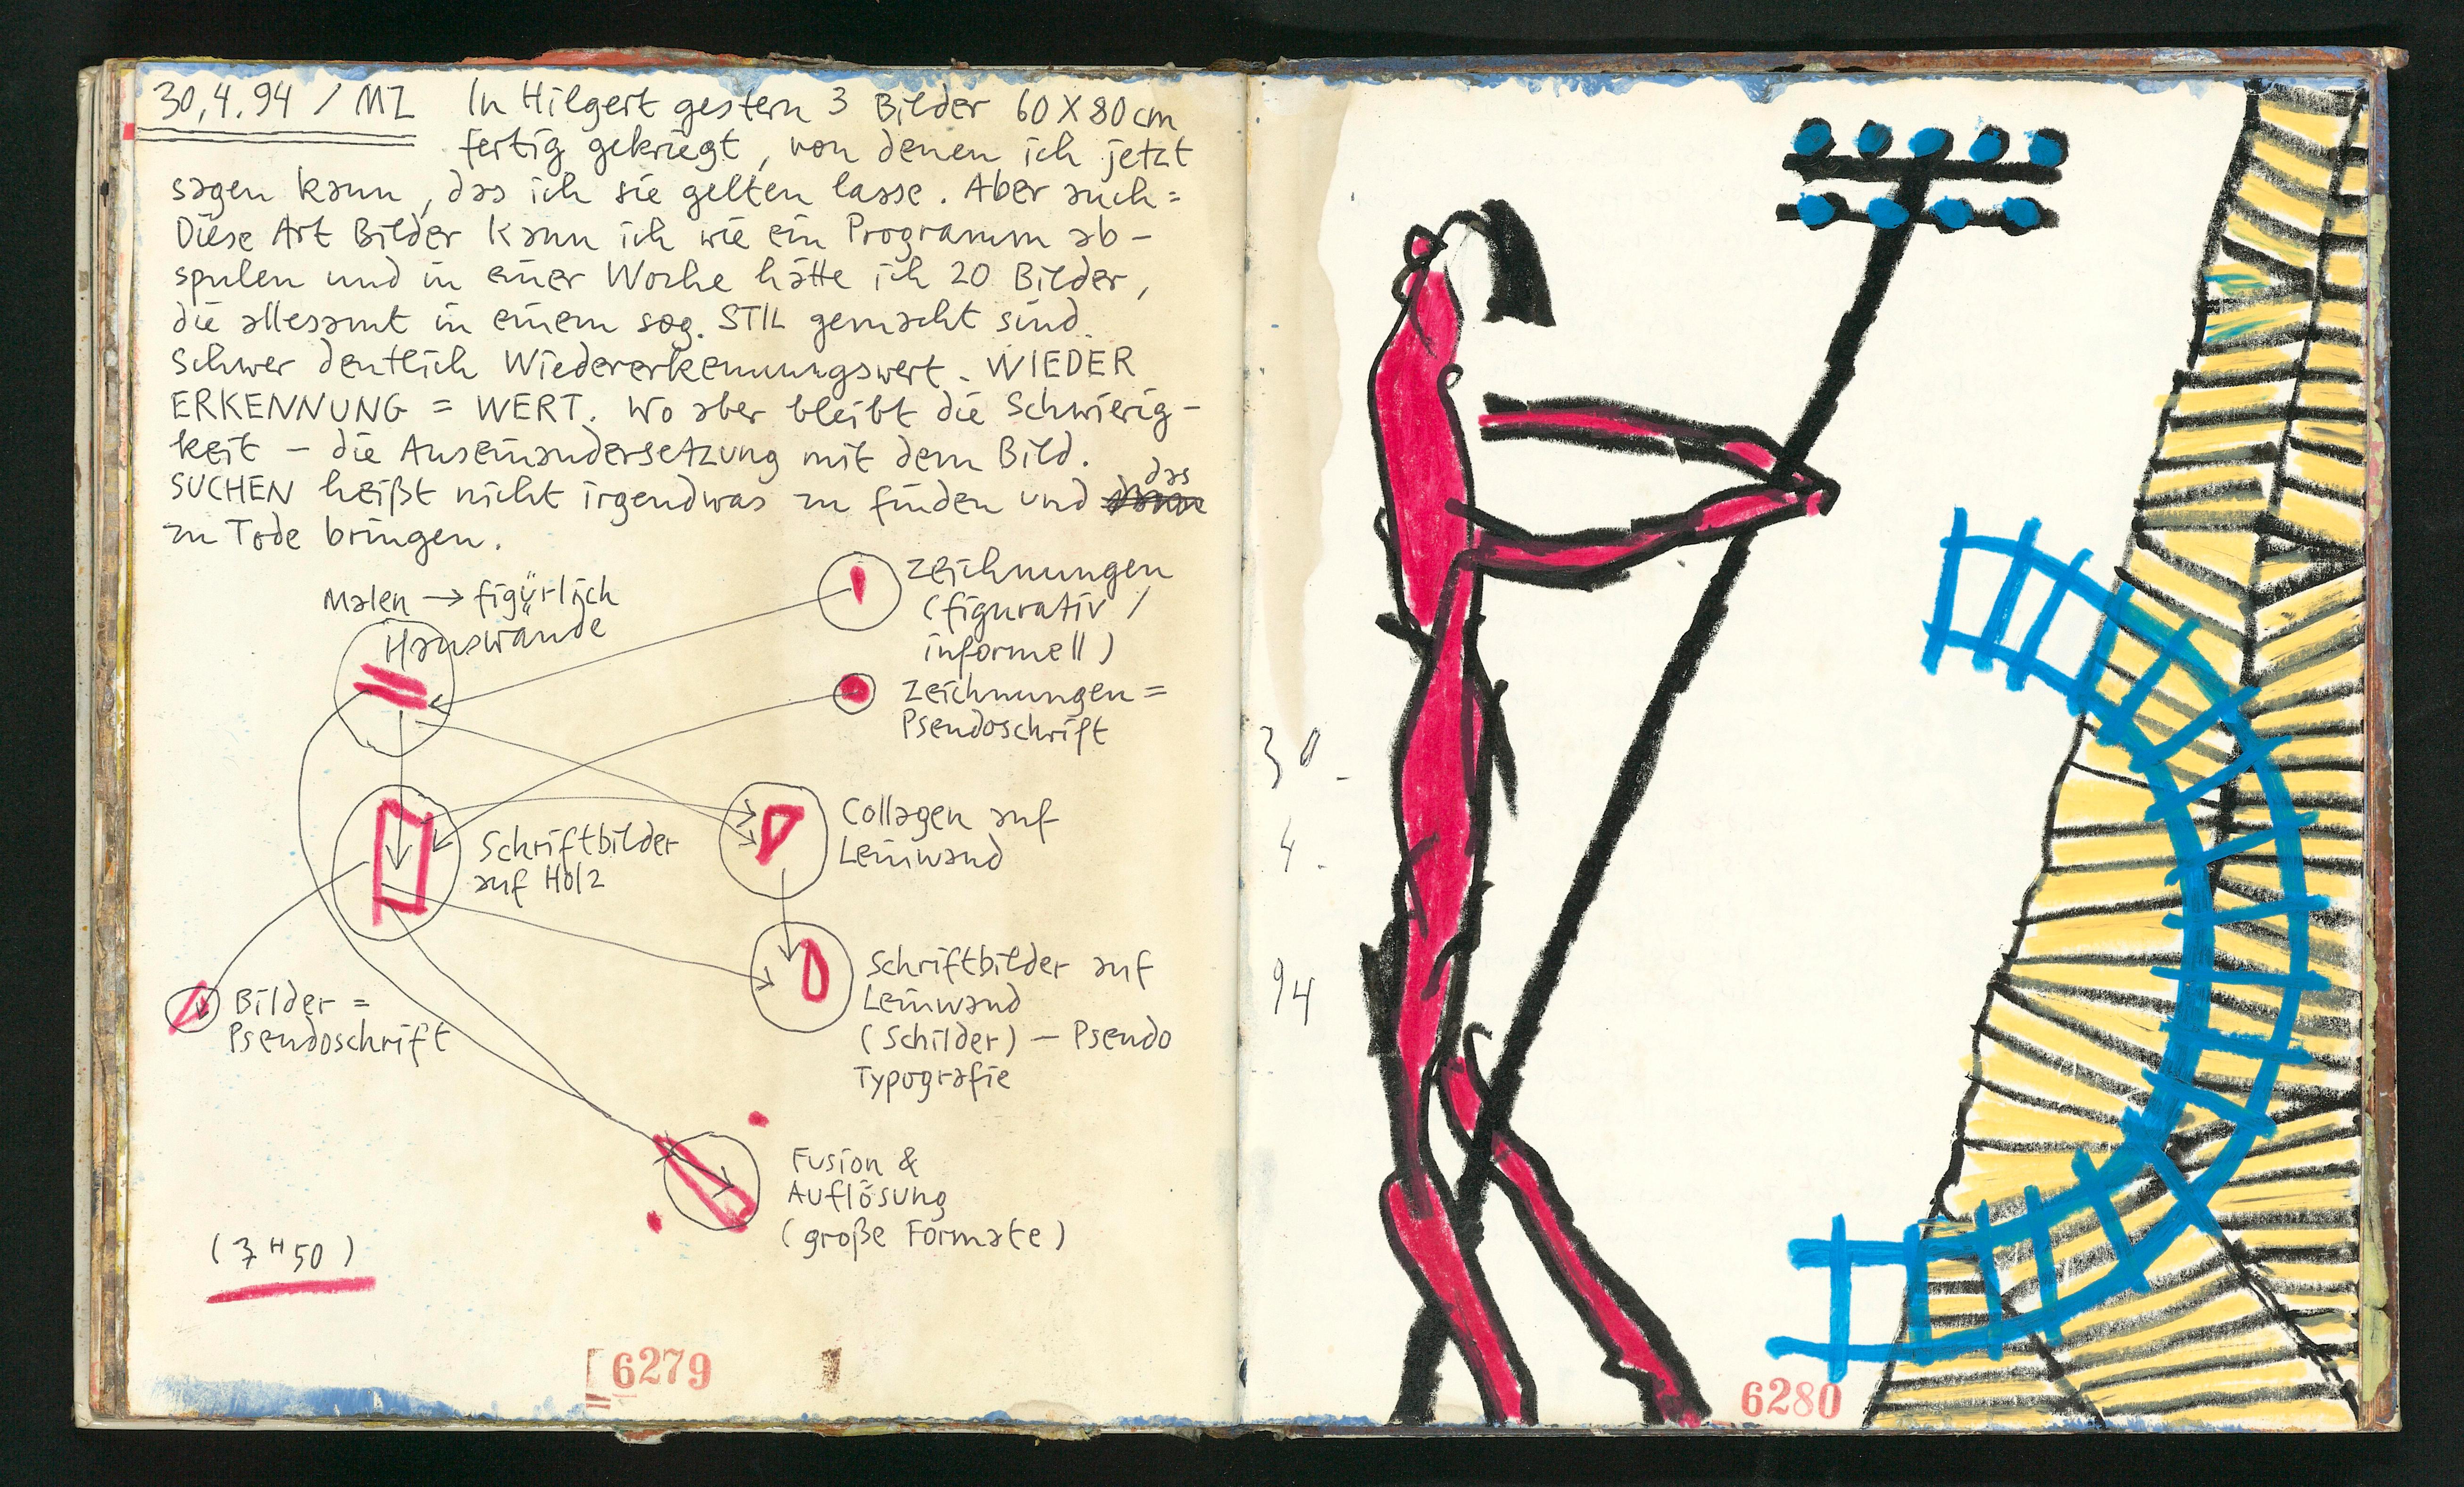 30.4.94 / MZ In Hilgert gestern 3 Bilder 60 X 80 cm
fertig gekriegt, von denen ich jetzt
sagen kann, das ich sie gelten lasse. Aber auch =
Diese Art Bilder kann ich wie ein Programm ab-
spulen und in einer Woche hätte ich 20 Bilder,
die allesamt in einem sog. STIL gemacht sind.
Schwer deutlich Wiedererkennungswert. WIEDER
ERKENNUNG = WERT. Wo aber bleibt die Schwierig-
keit – die Auseinandersetzung mit dem Bild.
SUCHEN heißt nicht irgendwas zu finden und das
zu Tode bringen.
Malen → figürlich
Hauswände
Zeichnungen
(figurativ /
informell)
Zeichnungen =
Pseudoschrift
Schriftbilder
auf Holz
Collagen auf
Leinwand
Bilder =
Pseudoschrift
Schriftbilder auf
Leinwand
(Schilder) – Pseudo
Typografie
Fusion &
Auflösung
(große Formate)
(7 H 50)
6279
30.
4.
94
6280